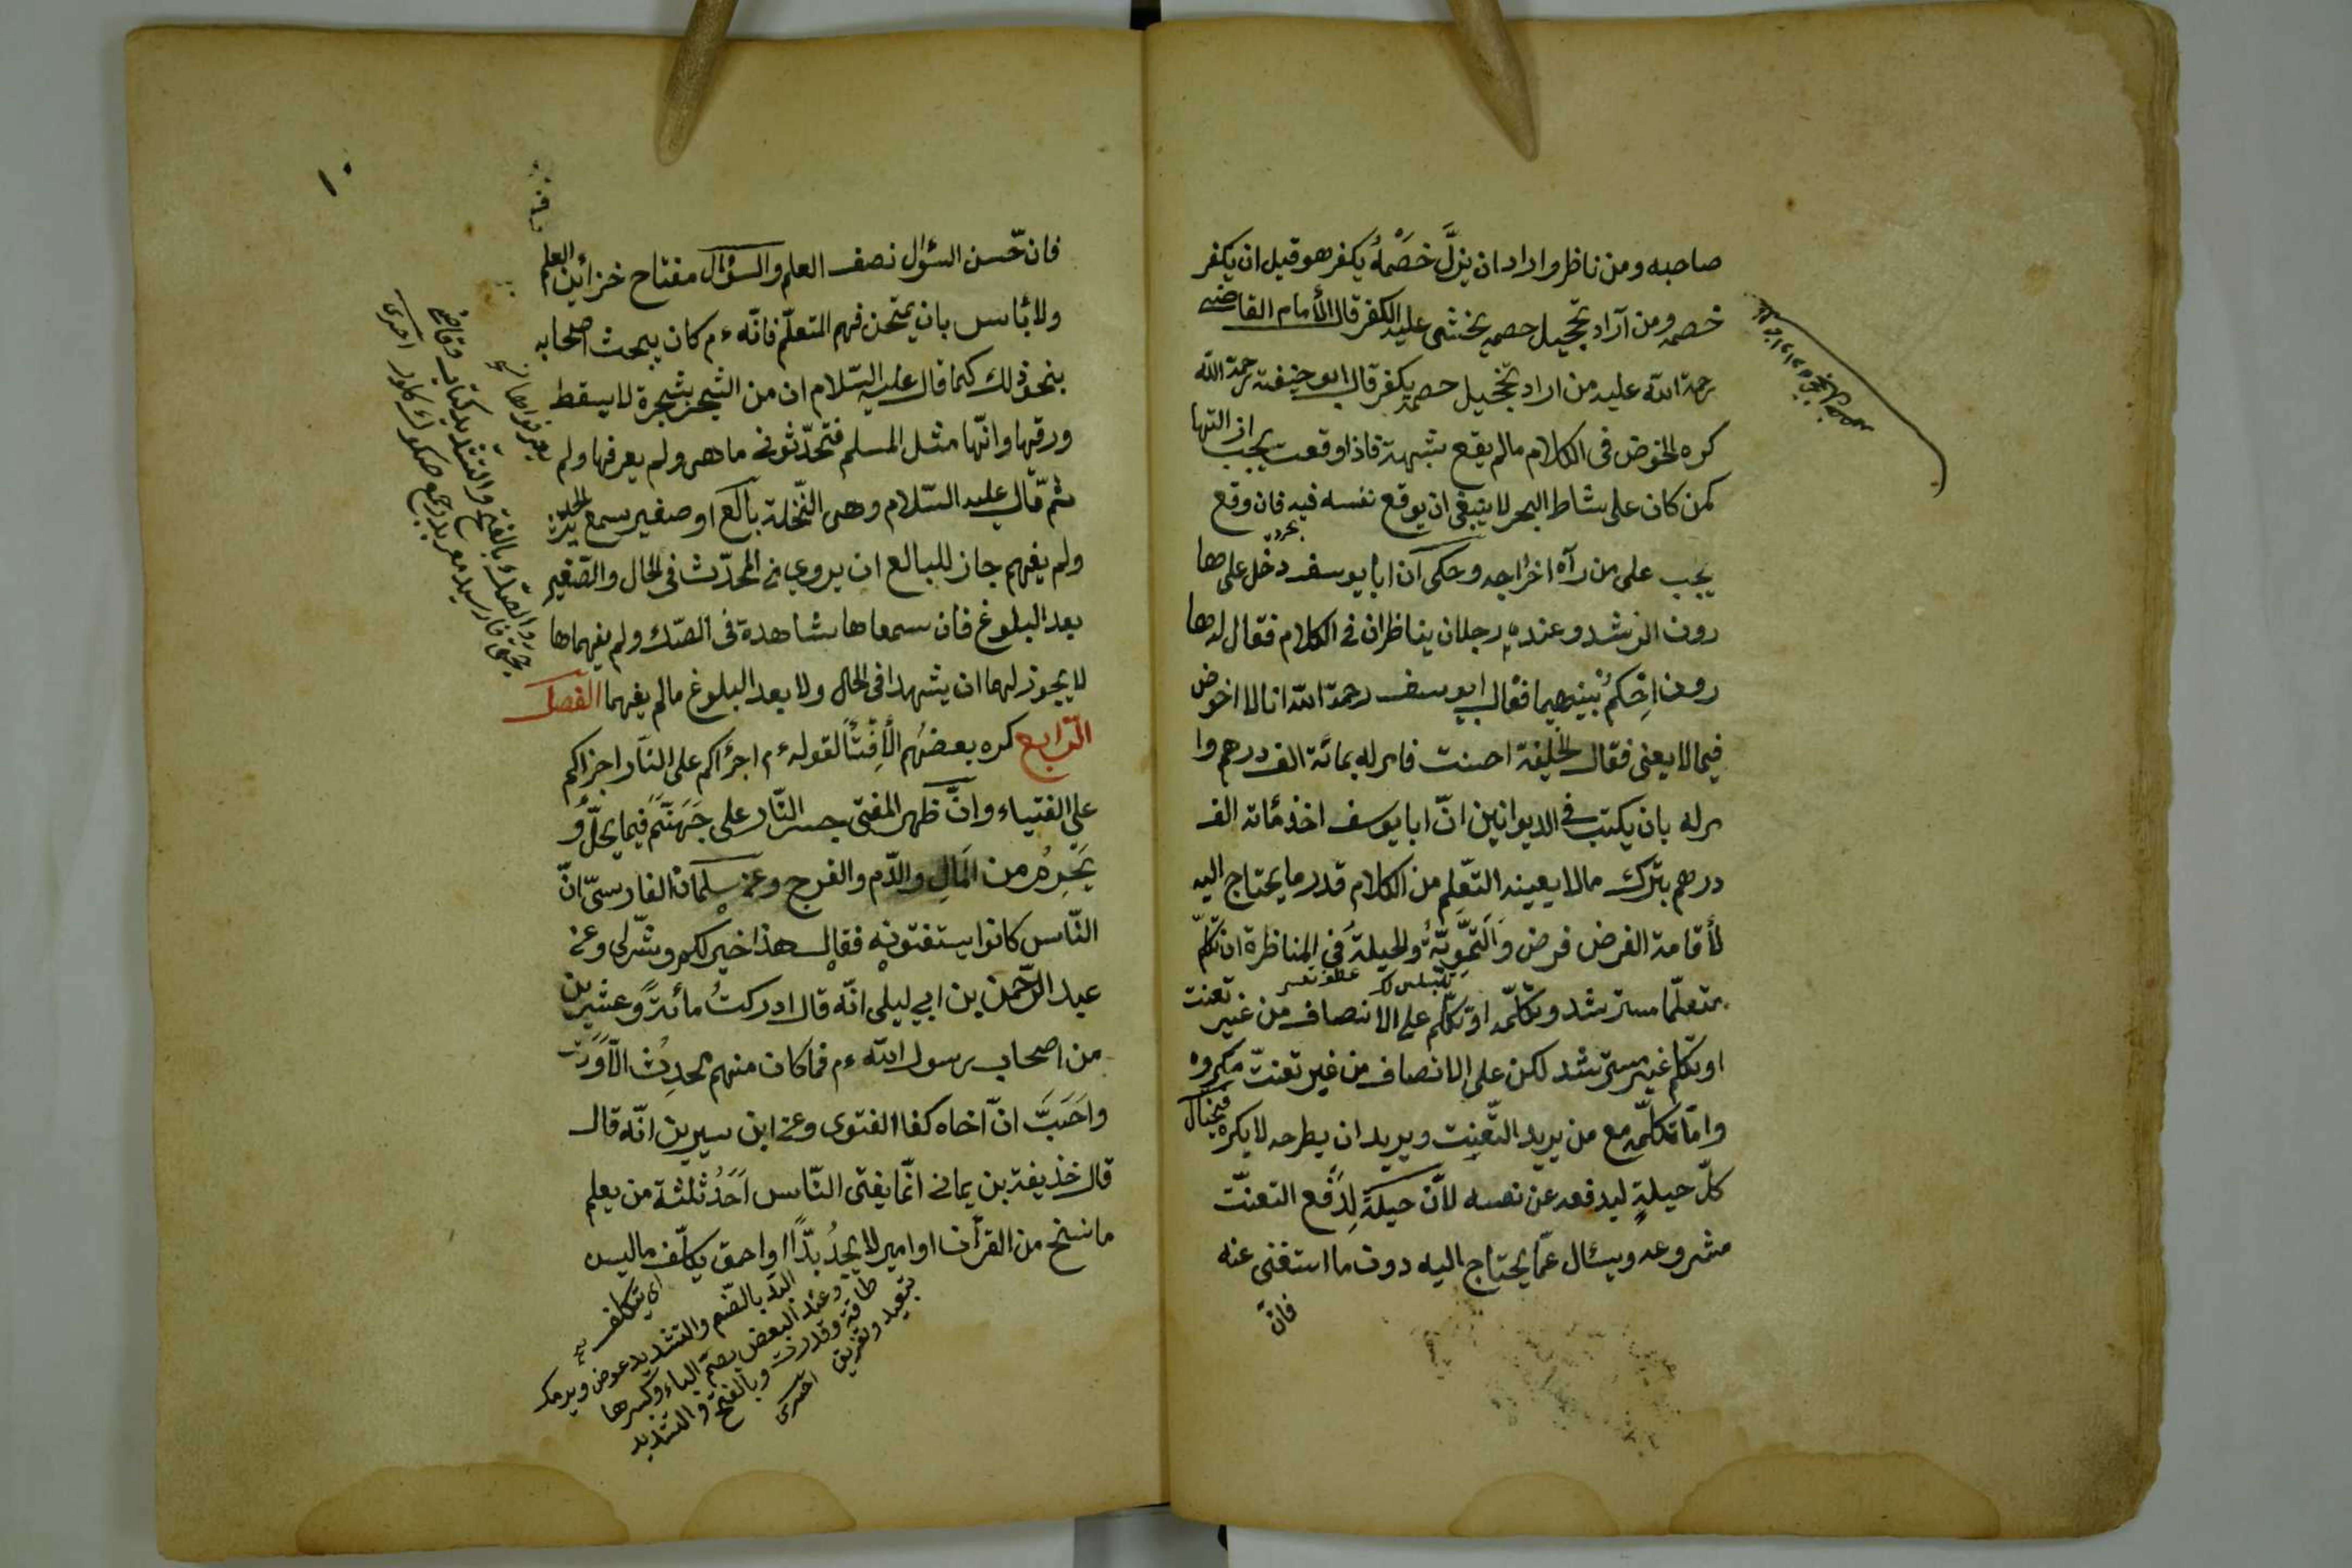 صاحبه ومن ناظر واراد ان يزلّ خصمهُ يكفر هو قبل ان يكفر
خصمه ومن آراد تخجيل حصمه يخشى عليه الكفر قال الأمام القاضى
رحمة الله عليه من اراد تخجيل حصمه يكفر قال ابو حنيفة رحمة الله
كره الخوض فى الكلام مالم يقع شبهة فاذا وقعت يجب ازالتها
كمن كان على شاط البحر لا ينبغى ان يوقع نفسه فيه فان وقع
يجب على من رآه اخراجه وحكى ان ابا يوسف دخل على ها
رون الرشد وعنده رجلان يناظران فى الكلام فقال له ها
رون احكمُ بينهما فقال ابو يوسف رحمة الله انا لا اخوض
فيما لا يعنى فقال الخليفة احسنت فامر له بمائة الف درهم وا
مر له بان يكتب فى الديوانين انّ ابا يوسف اخذ مائة الف
درهم بترك مالا يعينه التعلم من الكلام قدر ما يحتاج اليه
لأقامة الفرض فرض والتموّيّهُ والحيلةُ فى المناظرة ان تكلّم
متعلّما مسترشد وتكلّمه او تكلّم على الانصاف من غير تعنت
او تكلم غير مسترشد لكن على الانصاف من غير تعنتّ مكروه
وامّا تكلّمه مع من يريد التّعنِت ويريد ان يطرحه لا يكره فيحتال
كلّ حيلةٍ ليدفعه عن نفسه لأنّ حيلة لِدَفع التعنتّ
مشروعه ويسئال عمّا يحتاج اليه دون ما استغنى عنه
فانّ
١٠
فان حّسن السؤال نصف العلم والسؤال مفتاح خزائين العلم
ولا بأس بان يمتحن فهم المتعلّم فانّه ءم كان يبحث اصحابه
بنحو ذلك كما قال عليه السّلام ان من الشجر بشجرة لا يسقط
ورقها وانّها مثل المسلم فتحدّثونى ما هى ولم يعرفها ولم
ثمّ قال عليه السّلام وهى النّخلة بالغ او صغير سمع الحديث
ولم يفهم جاز للبالع ان يروى المحدّث فى الحال والصّغير
بعد البلوغ فان سمعاها بشاهدة فى الصّك ولم يفهماها
لا يجوز لهما ان يشهدا فى الحال ولا بعد البلوغ مالم يفهما الفصل
الرّابع كره بعضهُم الأفتأ لقوله ءم اجرأكم على النّار اجرأكم
على الفتياء وانّ ظهر المفتى جسر النّار على جَهَنّم فيما يحلّ و
يَحرمُ من المَالِ والدّم والفرج وعن سلمان الفارسىّ انّ
النّاس كانوا يستفتونه فقال هذا خير لكم وشّر لى وعن
عبد الرّحمن بن ابى ليلى انّه قال ادركتُ مائة وعشرين
من اصحاب رسول الله ءم فما كان منهم يحدِث الّا وَدّ
واحَبّ انّ اخاه كفا الفتوى وعن ابن سيرين انّه قال
قال خذيفة بن يمانى انّما يفتى النّاس اَحَدُ ثلثة من يعلم
ما نسخ من القرآن او امير لا يجدُ بدًّا او احمق يكلّف ما ليس
اى يتكلف
البدّ بالضّم والتشديد عوض
وعند البعض بضمّ الباء وكسرها
طاقة وقدرت وبالفتح والتشديد
تبعيد وتفريق اخترى